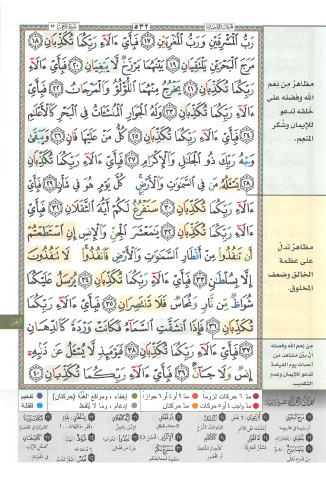 ٥٣٢
رَبُّ ٱلْمَشْرِقَيْنِ وَرَبُّ ٱلْمَغْرِبَيْنِ ١٧ فَبِأَيِّ ءَالَآءِ رَبِّكُمَا تُكَذِّبَانِ ١٨
مَرَجَ ٱلْبَحْرَيْنِ يَلْتَقِيَانِ ١٩ بَيْنَهُمَا بَرْزَخٌ لَّا يَبْغِيَانِ ٢٠ فَبِأَيِّ ءَالَآءِ
رَبِّكُمَا تُكَذِّبَانِ ٢١ يَخْرُجُ مِنْهُمَا ٱللُّؤْلُؤُ وَٱلْمَرْجَانُ ٢٢ فَبِأَيِّ
ءَالَآءِ رَبِّكُمَا تُكَذِّبَانِ ٢٣ وَلَهُ ٱلْجَوَارِ ٱلْمُنشَـَٔاتُ فِى ٱلْبَحْرِ كَٱلْأَعْلَٰمِ
٢٤ فَبِأَيِّ ءَالَآءِ رَبِّكُمَا تُكَذِّبَانِ ٢٥ كُلُّ مَنْ عَلَيْهَا فَانٍ ٢٦ وَيَبْقَىٰ
وَجْهُ رَبِّكَ ذُو ٱلْجَلَٰلِ وَٱلْإِكْرَامِ ٢٧ فَبِأَيِّ ءَالَآءِ رَبِّكُمَا تُكَذِّبَانِ
٢٨ يَسْـَٔلُهُۥ مَن فِى ٱلسَّمَٰوَٰتِ وَٱلْأَرْضِ كُلَّ يَوْمٍ هُوَ فِى شَأْنٍ ٢٩ فَبِأَيِّ
ءَالَآءِ رَبِّكُمَا تُكَذِّبَانِ ٣٠ سَنَفْرُغُ لَكُمْ أَيُّهَ ٱلثَّقَلَانِ ٣١ فَبِأَيِّ
ءَالَآءِ رَبِّكُمَا تُكَذِّبَانِ ٣٢ يَٰمَعْشَرَ ٱلْجِنِّ وَٱلْإِنسِ إِنِ ٱسْتَطَعْتُمْ
أَن تَنفُذُوا۟ مِنْ أَقْطَارِ ٱلسَّمَٰوَٰتِ وَٱلْأَرْضِ فَٱنفُذُوا۟ لَا تَنفُذُونَ
إِلَّا بِسُلْطَٰنٍ ٣٣ فَبِأَيِّ ءَالَآءِ رَبِّكُمَا تُكَذِّبَانِ ٣٤ يُرْسَلُ عَلَيْكُمَا
شُوَاظٌ مِّن نَّارٍ وَنُحَاسٌ فَلَا تَنتَصِرَانِ ٣٥ فَبِأَيِّ ءَالَآءِ رَبِّكُمَا
تُكَذِّبَانِ ٣٦ فَإِذَا ٱنشَقَّتِ ٱلسَّمَآءُ فَكَانَتْ وَرْدَةً كَٱلدِّهَانِ
٣٧ فَبِأَيِّ ءَالَآءِ رَبِّكُمَا تُكَذِّبَانِ ٣٨ فَيَوْمَئِذٍ لَّا يُسْـَٔلُ عَن ذَنۢبِهِۦٓ
إِنسٌ وَلَا جَآنٌّ ٣٩ فَبِأَيِّ ءَالَآءِ رَبِّكُمَا تُكَذِّبَانِ ٤٠
مظاهر من نعم
الله وفضله على
خلقه تدعو
للإيمان وشكر
المنعم.
مظاهر تدل
على عظمة
الخالق وضعف
المخلوق.
من نعم الله وفضله
أن بيّن مشاهد من
أحداث يوم القيامة
تدعو للإيمان وعدم
التكذيب به.
مد ٦ حركات لزوما
مد ٢ أو ٤ أو ٦ جوازا
إخفاء، ومواقع الغنّة (حركتان)
تفخيم
مد واجب ٤ أو ٥ حركات
مد حركتان
إدغام، وما لا يُلفظ
قلقلة